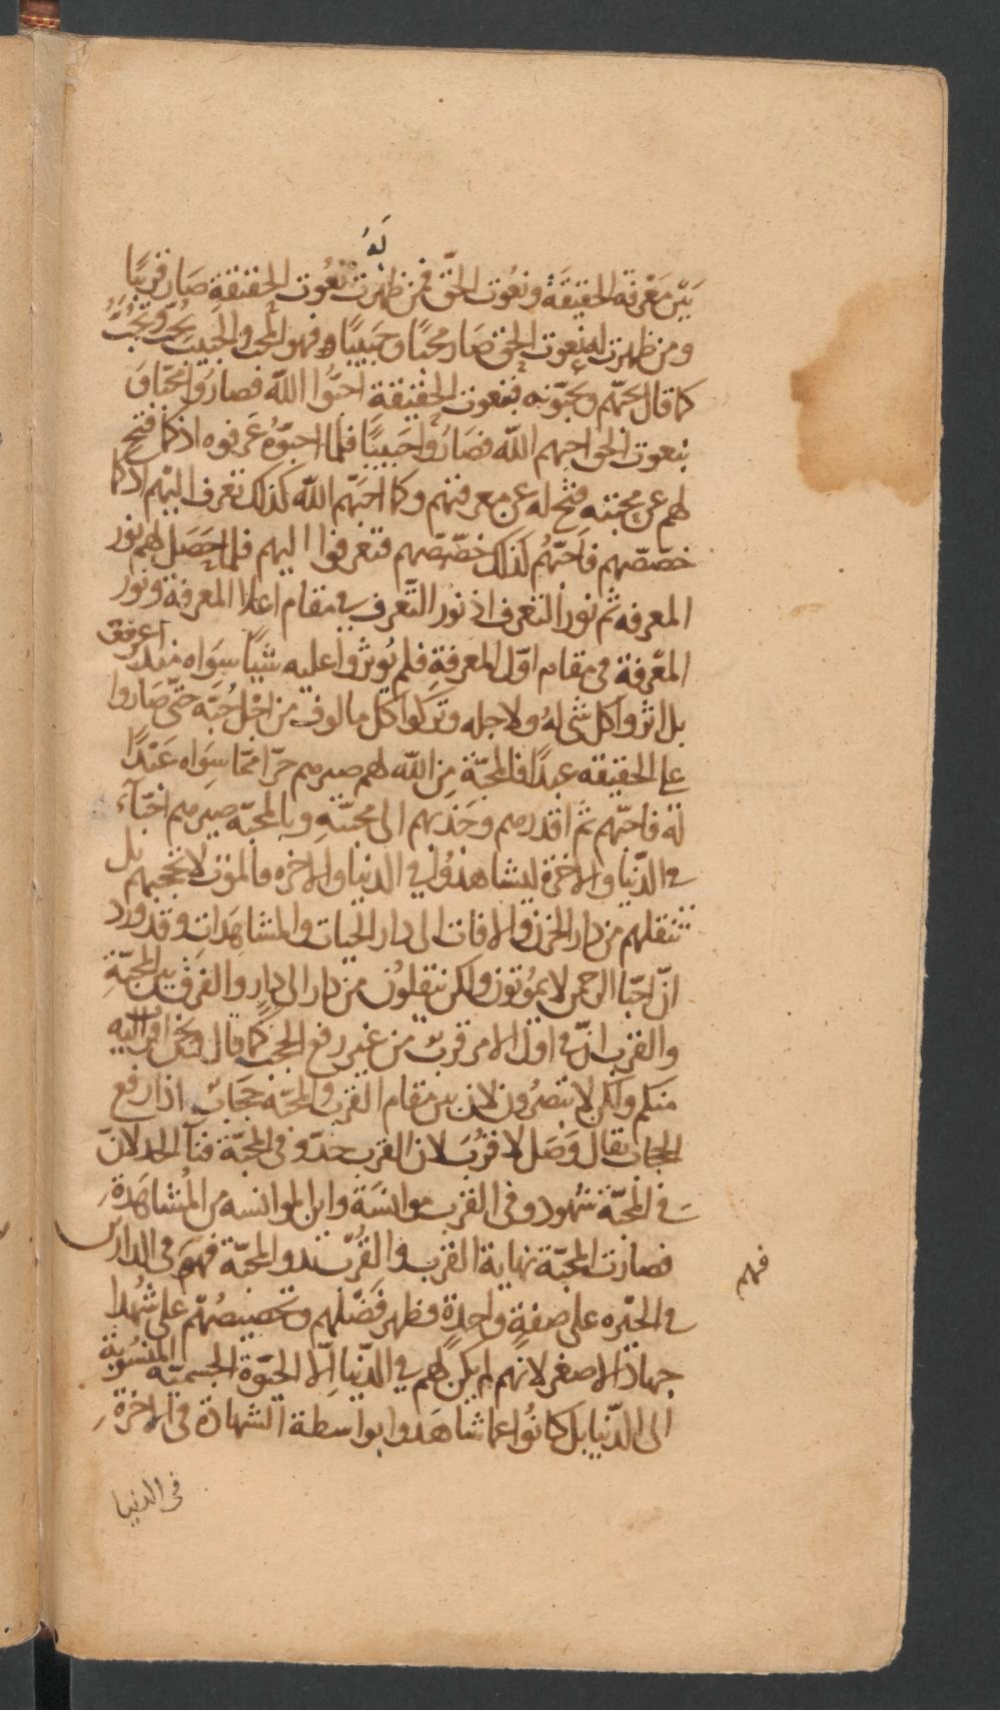 لَهُ
بَيْن مَعْرفة الحقيقَة ونعُوت الحَقّ فمن ظهرت نعُوت الحقيقةِ صَار قريبًا
ومن ظهرت له نعوت الحق صَار محبًا وحَبيبًا فهو المحب والحبيب يُحِبّ ويُحَبُّ
كما قال يحبّهم ويحبّونه فبنعوت الحقيقة احبّوا الله فصارُوا محبّا و
بنعوت الحق احبهم الله فصَارُوا حَبيبًا فلما احبّوُه عَرفوه اذ كما فتح
لهم عن محبته فتح له عن معرفتهم وكما احبّهم الله كذلك تعرف اليهم اذ كما
خصّصهم فاحبّهُم كذلك خصّصهم فتعرفوا اليهم فلما حصَل لهم نور
المعرفه ثم نور التعرف اذ نور التَّعرف في مقام اعلا المعرفة ونور
المعْرفة في مقام اوّل المعرفةِ فلم يُوثروا عليه شيًا سوَاه منذ اعرفوه
بل اثروا كل شى لهُ ولاجله وتركوا كل مالوف من اجْل حُبّه حَتّى صَاروا
على الحقيقه عبدًا فالمحبّة مِن الله لهم صيرهم حرّا ممّا سِوَاه عَبْدًا
لَه فاحبّهم ثمّ اقدرهم وجَذبهم الى محبّتهِ وبالمحبّة صيرهم احبّآء
في الدّنيا والاخرة ليشاهدُوا في الدنيا والاخره فالموت لا يحجبهم بل
تنقلهم من دار الحزن والافات الى دار الحيات والمشاهدَات وقد ورد
انّ احبّا الرحمن لا يموُتون ولكن ينقلُون من دارٍ الى دارٍ والفرَق بين المحبّةِ
والقرب انّ في اول الامر قربٌ من غير رفع الحجب كما قال ونحن اقرب اليه
منكم ولكن لا تبصرُون لان بين مقام القرب والمحبّة حجابٌ اذا رفع
الحجاب يقال وَصَل لا قرُبَ لان القرب حدّ وفى المحبّة فنآ الحد لانّ
في المحبّة شهود وفى القرب موانسَة واين الموانسه من المُشاهَدَةِ
فصارت المحبّة نهاية القرب والقُرْب بدو المحبّة فهمَ في الدارين
فهم
في الحيْره على صفةٍ واحدة وظهر فضَلهم وتخصيصهُم على شهُدا
جهاد الاصغر لانهم لم يكن لهُم في الدّنيا الّا الحيوة الجسميّه المنسُوبة
الى الدّنيا بل كانُوا عما شاهَدوا بواسطة الشهادَة في الاخرةِ
فى الدنيا